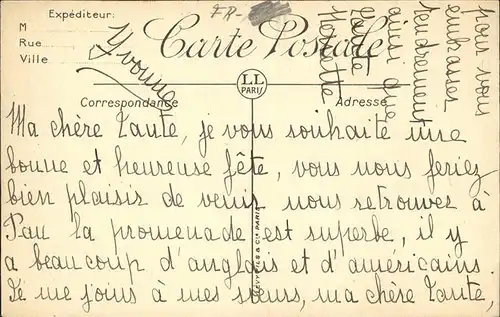 Expéditeur:
M
Rue
Ville
FR-
Carte Postale
LL
PARIS
Correspondance
Adresse
LEVY FILS & Cie PARIS
Ma chère Tante, je vous souhaite une
bonne et heureuse fête, vous nous feriez
bien plaisir de venir nous retrouvez à
Pau la promenade est superbe, il y
a beaucoup d'anglais et d'américains.
Je me joins à mes sœurs, ma chère Tante,
pour vous
embrasser
tendrement
ainsi que
Tante
Henriette
Yvonne